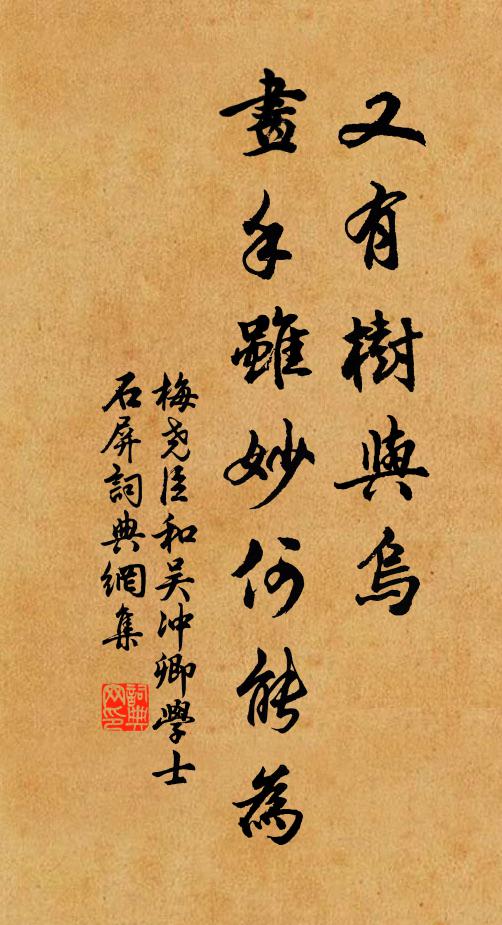 又有樹與烏
畫手雖妙何能為
梅堯臣和吴冲卿學士
石屏詞典網集
詞典
网印